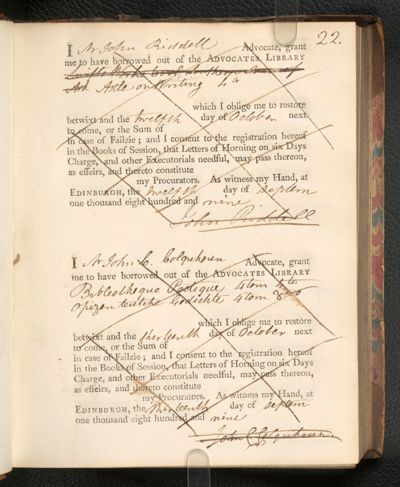 22.
I Mr John Riddell Advocate, grant
me to have borrowed out of the ADVOCATES LIBRARY
Swifts Works
Astle on Writing 4to
which I oblige me to restore
betwixt and the twelfth day of October next
to come, or the Sum of
in case of Failzie; and I consent to the registration hereof
in the Books of Session, that Letters of Horning on six Days
Charge, and other Executorials needful, may pass thereon,
as effeirs, and thereto constitute
my Procurators. As witness my Hand, at
EDINBURGH, the twelfth day of Septem
one thousand eight hundred and nine
John Riddell
I Mr John C. Colquhoun Advocate, grant
me to have borrowed out of the ADVOCATES LIBRARY
Bibliotheque Poetique 4 tom 4to
Opizen teutche Gedichte 4 tom 8vo
which I oblige me to restore
betwixt and the thirteenth day of October next
to come, or the Sum of
in case of Failzie; and I consent to the registration hereof
in the Books of Session, that Letters of Horning on six Days
Charge, and other Executorials needful, may pass thereon,
as effeirs, and thereto constitute
my Procurators. As witness my Hand, at
EDINBURGH, the thirteenth day of Septem
one thousand eight hundred and nine
John C Colquhoun